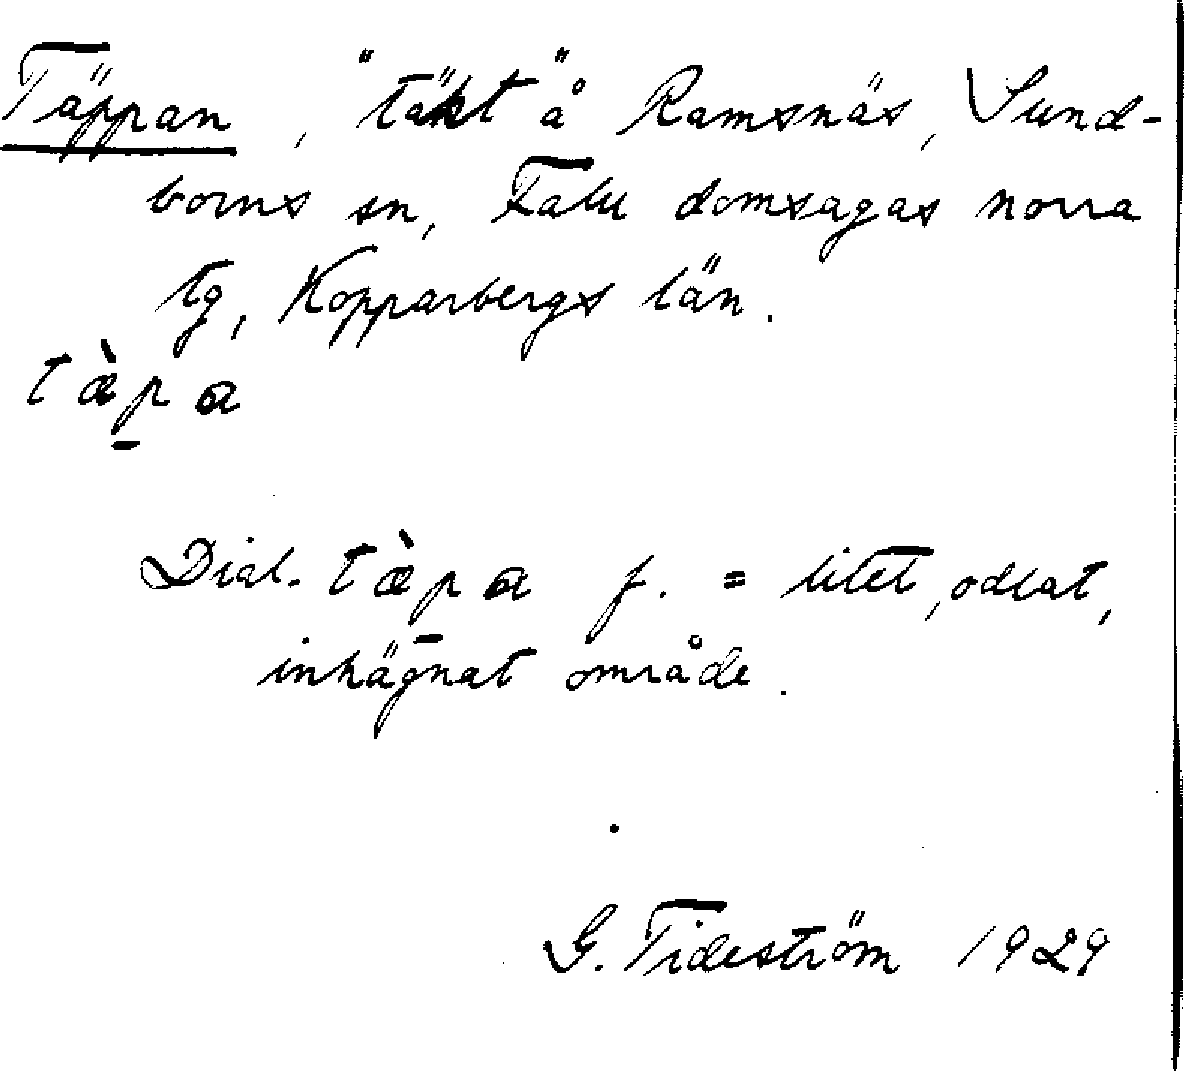 Täppan, "täkt" å Ramsnäs, Sund-
borns sn, Falu domsagas norra
tg, Kopparbergs län.
tæ̀p̱a
Dial. tæ̀p̱a f. = litet, odlat,
inhägnat område.
G. Tideström 1929